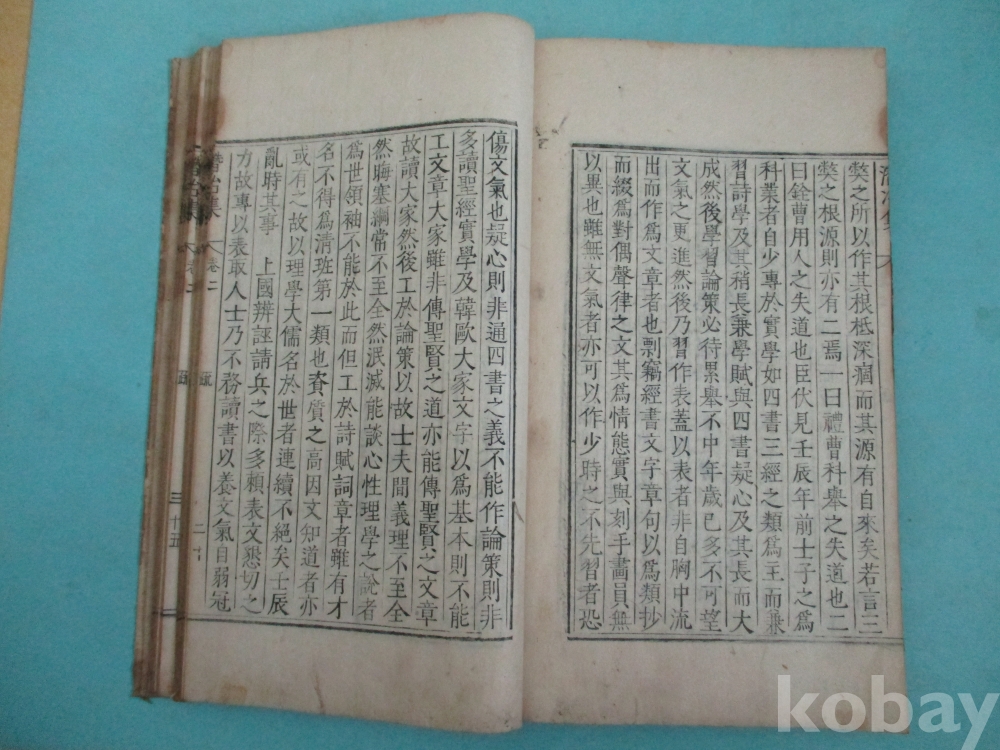 弊之所以作其根柢深涸而其源有自來矣若言三
弊之根源則亦有二焉一曰禮曹科舉之失道也二
曰銓曹用人之失道也臣伏見壬辰年前士子之爲
科業者自少專於實學如四書三經之類爲主而兼
習詩學及其稍長兼學賦與四書疑心及其長而大
成然後學習論策必待累舉不中年歲已多不可望
文氣之更進然後乃習作表蓋以表者非自胸中流
出而作爲文章者也剽竊經書文字章句以爲類抄
而綴爲對偶聲律之文其爲情態實與刻手畵員無
以異也雖無文氣者亦可以作少時之不先習者恐
傷文氣也疑心則非通四書之義不能作論策則非
多讀聖經實學及韓歐大家文字以爲基本則不能
工文章大家雖非傳聖賢之道亦能傳聖賢之文章
故讀大家然後工於論策以故士夫間義理不至全
然晦塞綱常不至全然泯滅能談心性理學之說者
爲世領袖不能於此而但工於詩賦詞章者雖有才
名不得爲清班第一類也資質之高因文知道者亦
或有之故以理學大儒名於世者連續不絕矣壬辰
亂時其事 上國辨誣請兵之際多賴表文懇切之
方故專以表取人士乃不務讀書以養文氣自弱冠
集 卷二
kobay